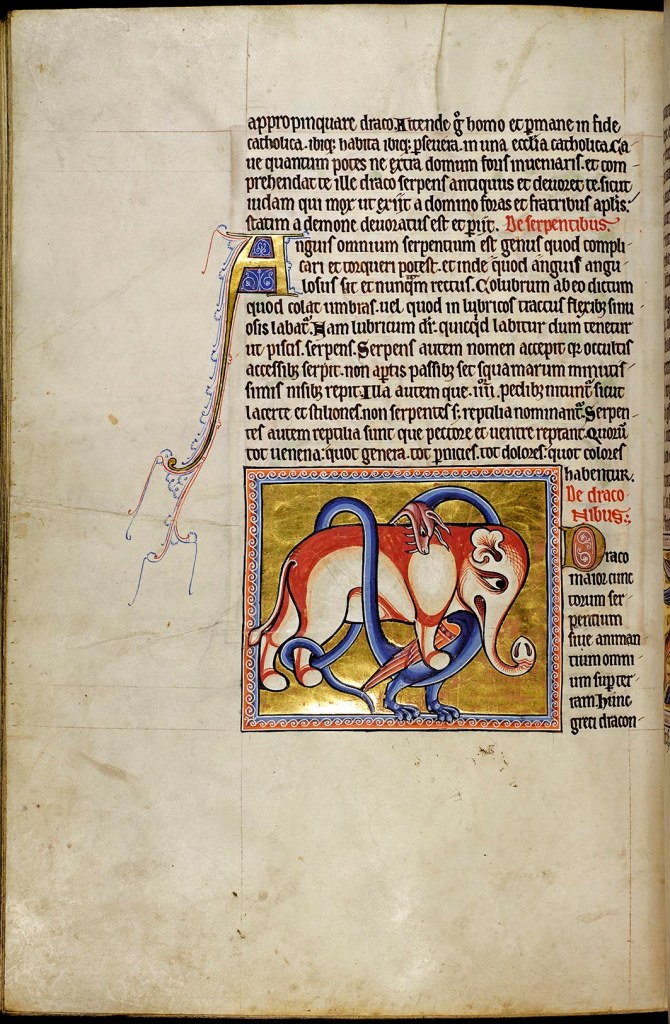 appropinquare draco. Attende g̊ homo et p̱mane in fide
catholica. ibiq; habita ibiq; p̱seuera. in una ecclia catholica. Ca-
ue quantum potes ne extra domum foris inueniaris. et com-
prehendat te ille draco serpens antiquus et deuoret te. sicut
iudam qui mox ut exiit a domino foras et fratribus aplis.
statim a demone deuoratus est et p̱iit. De serpentibus.
Anguis omnium serpentium est genus quod compli-
cari et torqueri potest. et inde quod anguis angu-
losus sit et nunq̄m rectus. Colubrum ab eo dictum
quod colat umbras. uel quod in lubricos tractus flexib; sinu-
osis labat᷑. Nam lubricum dr̄. quicq̇d labitur dum tenetur
ut piscis. serpens. Serpens autem nomen accepit q̄ occultis
accessib; serpit. non aptis passib; set squamarum minutis-
simis nisib; repit. Illa autem que .iiii. pedib; nitunt᷑ sicut
lacerte et stiliones. non serpentes s; reptilia nominant᷑. Serpen-
tes autem reptilia sunt que pectore et uentre reptant. Quorū
tot uenena: quot genera. tot p̱nicies. tot dolores: quot colores
habentur.
De draco-
nibus.
Draco
maior cunc-
torum ser-
pentium
siue animan-
tium omni-
um sup̱ ter-
ram. Hunc
greci dracon-